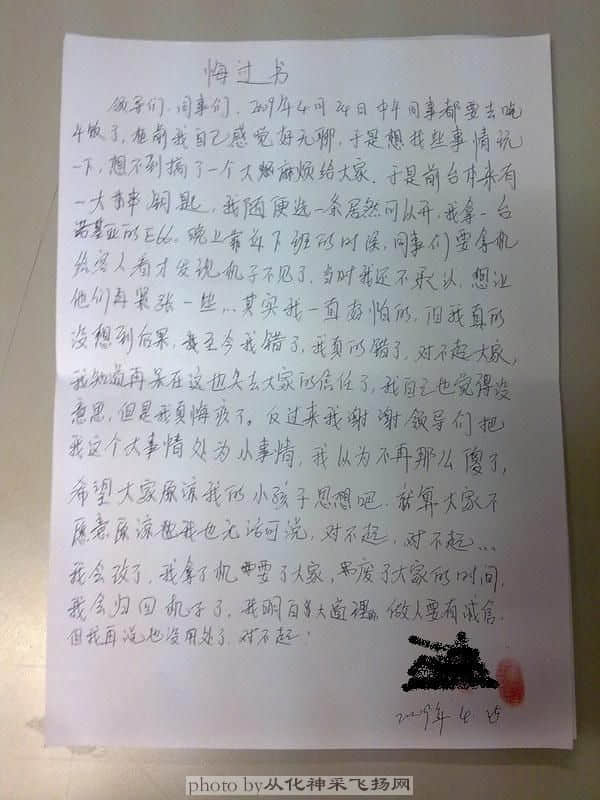 悔过书
领导们、同事们、2009年4月24日中午同事都要去吃
午饭了,柜前我自己感觉好无聊,于是想找些事情玩
一下,想不到搞了一个大麻烦给大家.于是前台本来有
一大串钥匙,我随便选一条居然可以开,我拿一台
诺基亚的E66。晚上靠前下班的时候,同事们要拿机
给客人看才发现机子不见了,当时我还不承认,想让
他们再紧张一些...其实我一直好怕的,但我真的
没想到后果,至今我错了,我真的错了,对不起大家,
我知道再呆在这也失去大家的信任了,我自己也觉得没
意思,但是我真悔疚了。反过来我谢谢领导们把
我这个大事情处为小事情,我认为不再那么傻了,
希望大家原谅我的小孩子思想吧.就算大家不
愿意原谅我也无话可说,对不起,对不起...
我会改了,我拿了机耍了大家,废了大家的时间.
我会归回机子了,我明白大道理,做人要有诚信.
但我再说也没用处了.对不起!
2009年4
photo by从化神采飞扬网